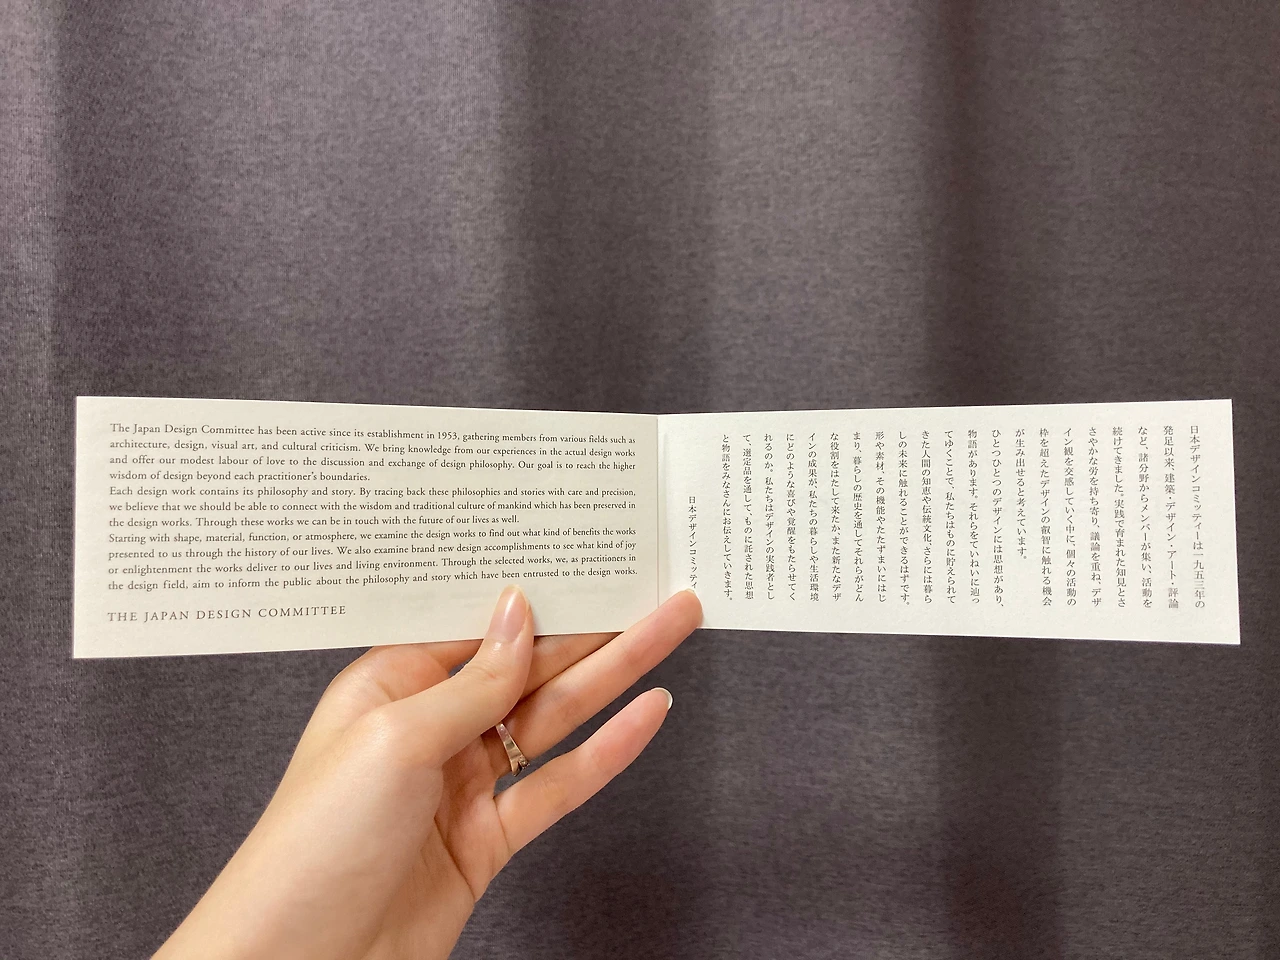 The Japan Design Committee has been active since its establishment in 1953, gathering members from various fields such as
architecture, design, visual art, and cultural criticism. We bring knowledge from our experiences in the actual design works
and offer our modest labour of love to the discussion and exchange of design philosophy. Our goal is to reach the higher
wisdom of design beyond each practitioner's boundaries.
Each design work contains its philosophy and story. By tracing back these philosophies and stories with care and precision,
we believe that we should be able to connect with the wisdom and traditional culture of mankind which has been preserved in
the design works. Through these works we can be in touch with the future of our lives as well.
Starting with shape, material, function, or atmosphere, we examine the design works to find out what kind of benefits the works
presented to us through the history of our lives. We also examine brand new design accomplishments to see what kind of joy
or enlightenment the works deliver to our lives and living environment. Through the selected works, we, as practitioners in
the design field, aim to inform the public about the philosophy and story which have been entrusted to the design works.
THE JAPAN DESIGN COMMITTEE
日本デザインコミッティーは一九五三年の
発足以来、建築・デザイン・アート・評論
など、諸分野からメンバーが集い、活動を
続けてきました。実践で育まれた知見とさ
さやかな労を持ち寄り、議論を重ね、デザ
イン観を交感していく中に、個々の活動の
枠を超えたデザインの叡智に触れる機会
が生み出せると考えています。
ひとつひとつのデザインには思想があり、
物語があります。それらをていねいに辿っ
てゆくことで、私たちはものに貯えられて
きた人間の知恵や伝統文化、さらには暮ら
しの未来に触れることができるはずです。
形や素材、その機能やたたずまいにはじ
まり、暮らしの歴史を通してそれらがどん
な役割をはたして来たか、また新たなデザ
インの成果が、私たちの暮らしや生活環境
にどのような喜びや覚醒をもたらせてく
れるのか。私たちはデザインの実践者とし
て、選定品を通して、ものに託された思想
と物語をみなさんにお伝えしていきます。
日本デザインコミッティー